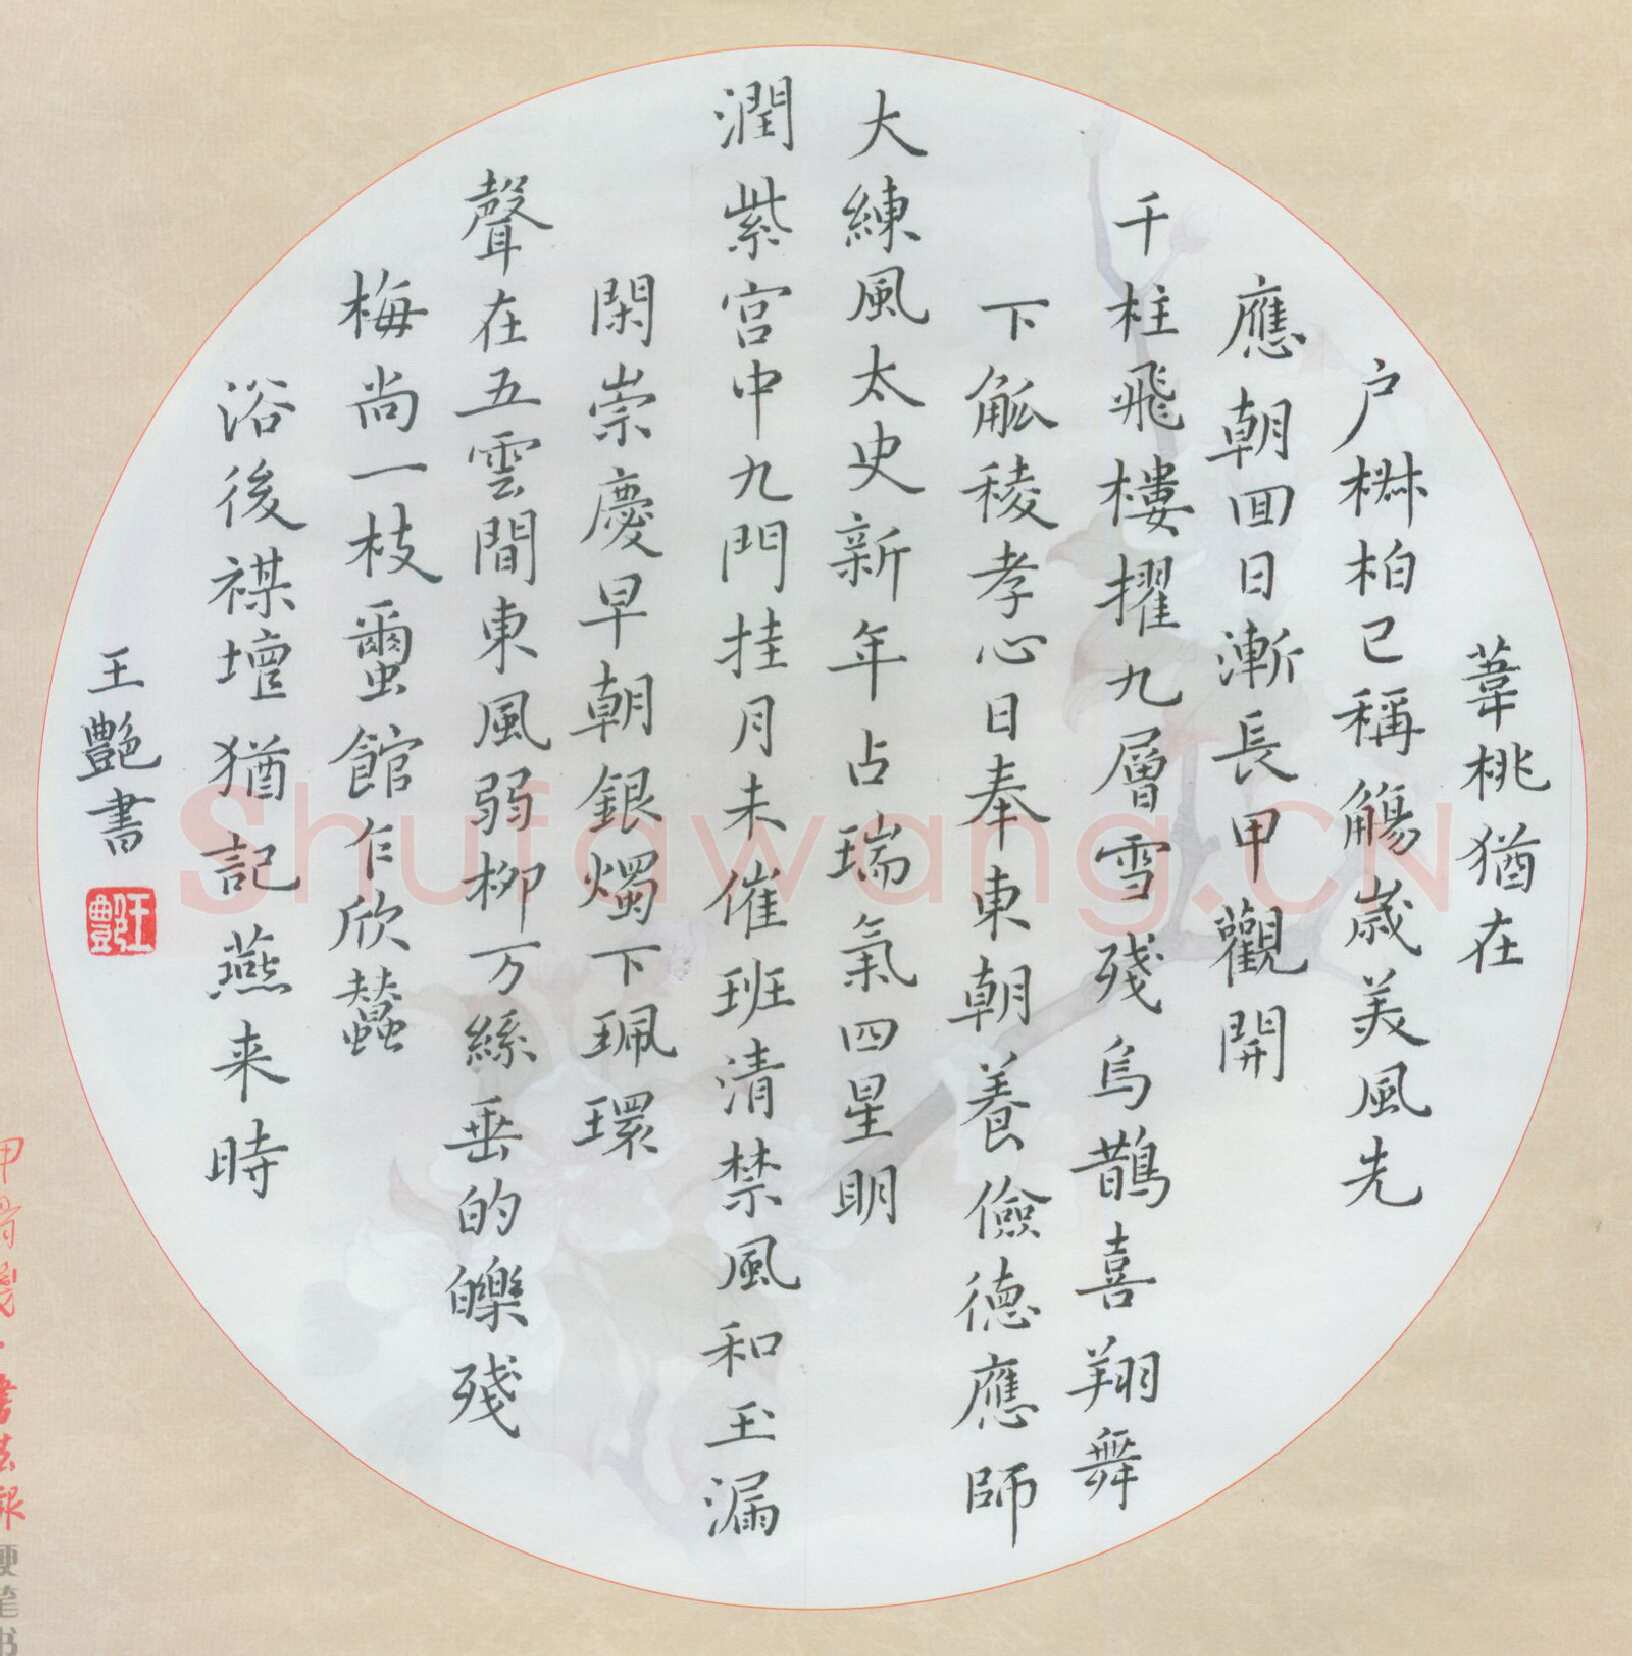 葦桃猶在
户椒柏已稱觴歲美風先
應朝回日漸長甲觀開
千柱飛樓擢九層雪殘烏鵲喜翔舞
下觚稜孝心日奉東朝養儉德應師
大練風太史新年占瑞氣四星明
潤紫宮中九門挂月未催班清禁風和玉漏
閑崇慶早朝銀燭下珮環
聲在五雲間東風弱柳万絲垂的皪殘
梅尚一枝蠒館乍欣蠶
浴後禖壇猶記燕来時
王艷書
王艷
Shufawang.CN
甲骨箋·書法報
硬笔书